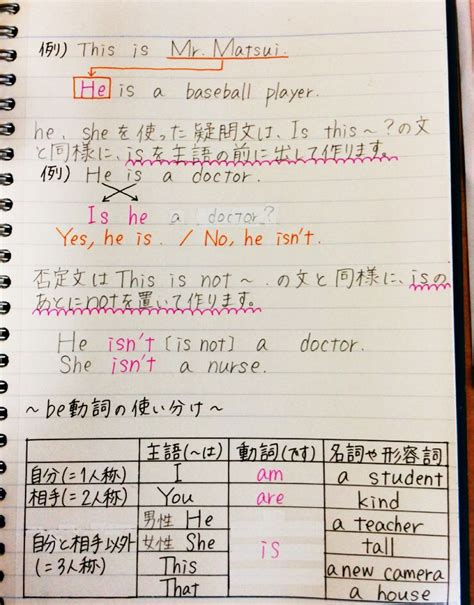 例) This is Mr. Matsui.
He is a baseball player.
he、sheを使った疑問文は、Is this～?の文
と同様に、isを主語の前に出して作ります。
例) He is a doctor.
Is he a doctor?
Yes, he is. / No, he isn't.
否定文はThis is not～.の文と同様に、isの
あとにnotを置いて作ります。
He isn't [is not] a doctor.
She isn't a nurse.
～be動詞の使い分け～
主語(～は) 動詞(です) 名詞や形容詞
自分(=1人称) I am a student
相手(=2人称) You are kind
男性 He a teacher
自分と相手以外 女性 She is tall
(=3人称) This a new camera
That a house